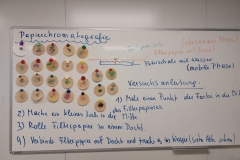 Papierchromatografie
Filterpapier mit Docht
Petrischale mit Wasser
(mobile Phase)
Versuchsanleitung:
1) Male einen Punkt der Farbe in die Mitte
2) Mache ein kleines Loch in die Mitte
des Filterpapiers
3) Rolle Filterpapier zu einem Docht.
4) Verbinde Filterpapier mit Docht und in Wasser (siehe Abb. oben)